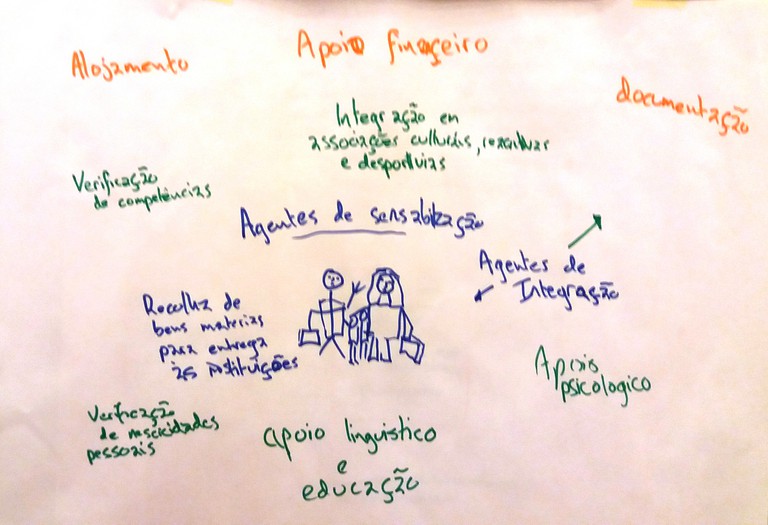 Alojamento
Apoio finaçeiro
documentação
Integração en
associações culturais, recreativas
e desportivas
Verificação
de competências
Agentes de sensabilização
Agentes de
Integração
Recolha de
bens materias
para entrega
às instituições
Apoio
psicologico
Verificação
de necicidades
pessoais
apoio linguistico
e
educação